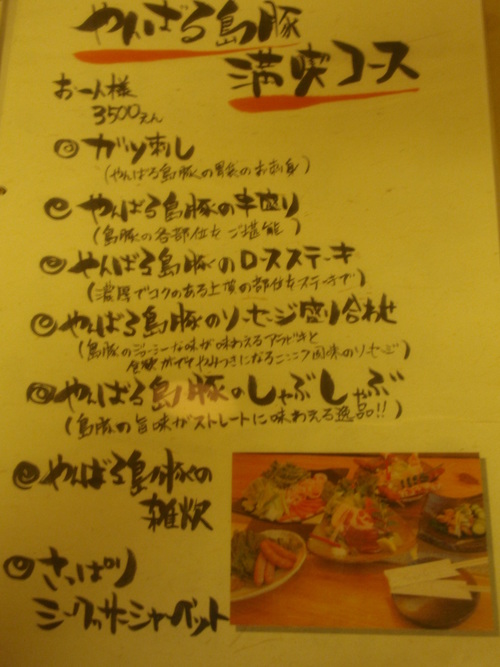 やんばる島豚
満喫コース
お一人様
3500えん
◎ガツ刺し
(やんばる島豚の胃袋のお刺身)
◎やんばる島豚の串盛り
(島豚の各部位をご堪能)
◎やんばる島豚のロースステーキ
(濃厚でコクのある上質の部位をステーキで)
◎やんばる島豚のソーセージ盛り合わせ
(島豚のジューシーな味が味わえるアラビキと
食欲がやみつきになるニンニク風味のソーセージ)
◎やんばる島豚のしゃぶしゃぶ
(島豚の旨味がストレートに味わえる逸品!!)
◎やんばる島豚の
雑炊
◎さっぱり
シークァーサーシャーベット